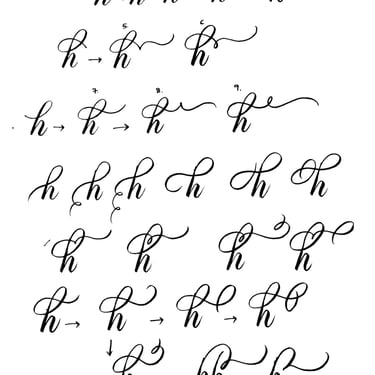 h h h h h
5. 6.
h → h h
7. 8. 9.
h → h → h h
h h h h h h
h h h h
h → h → h → h
↓
h h h h